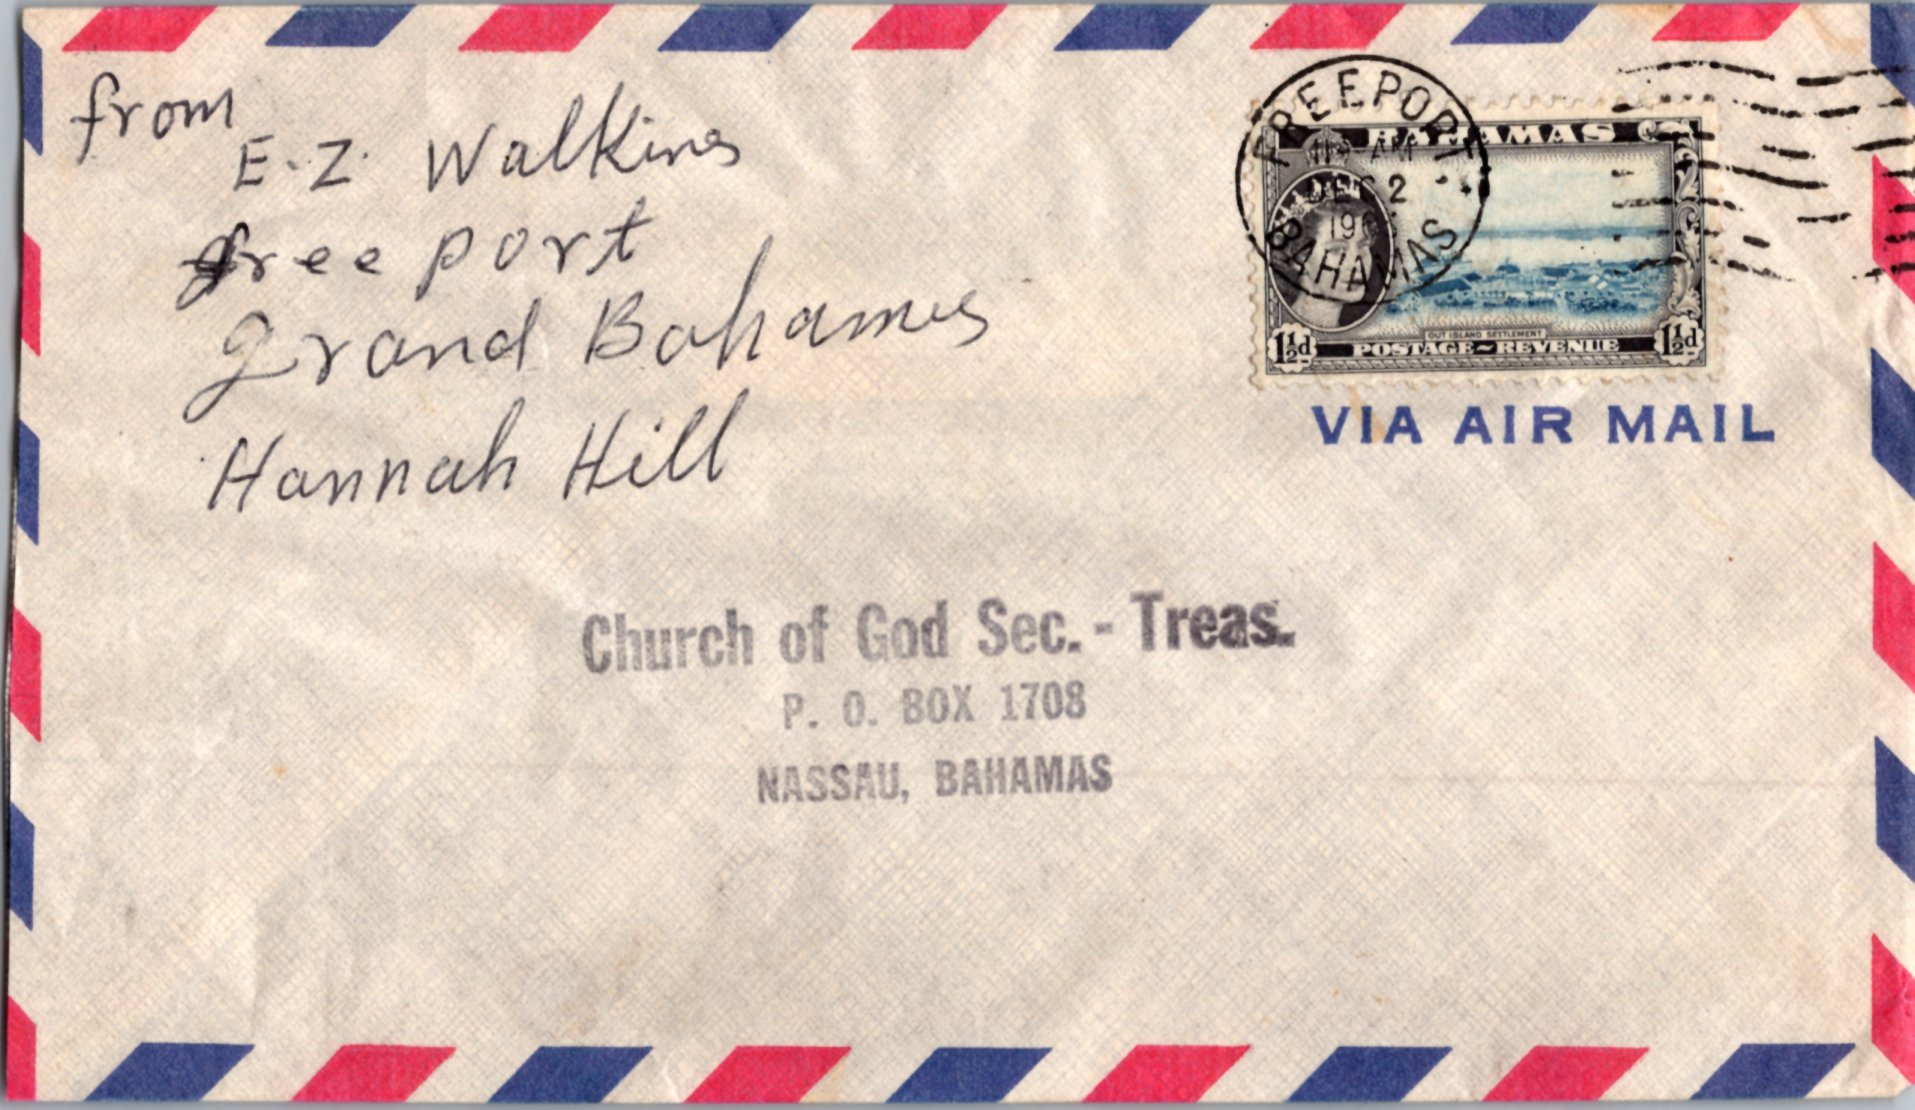 from
E. Z. Walkines
freeport
grand Bahames
Hannah Hill
FREEPORT
AM
DEC 2
BAHAMAS
BAHAMAS
OUT ISLAND SETTLEMENT
1½d POSTAGE~REVENUE 1½d
VIA AIR MAIL
Church of God Sec. - Treas.
P. O. BOX 1708
NASSAU, BAHAMAS